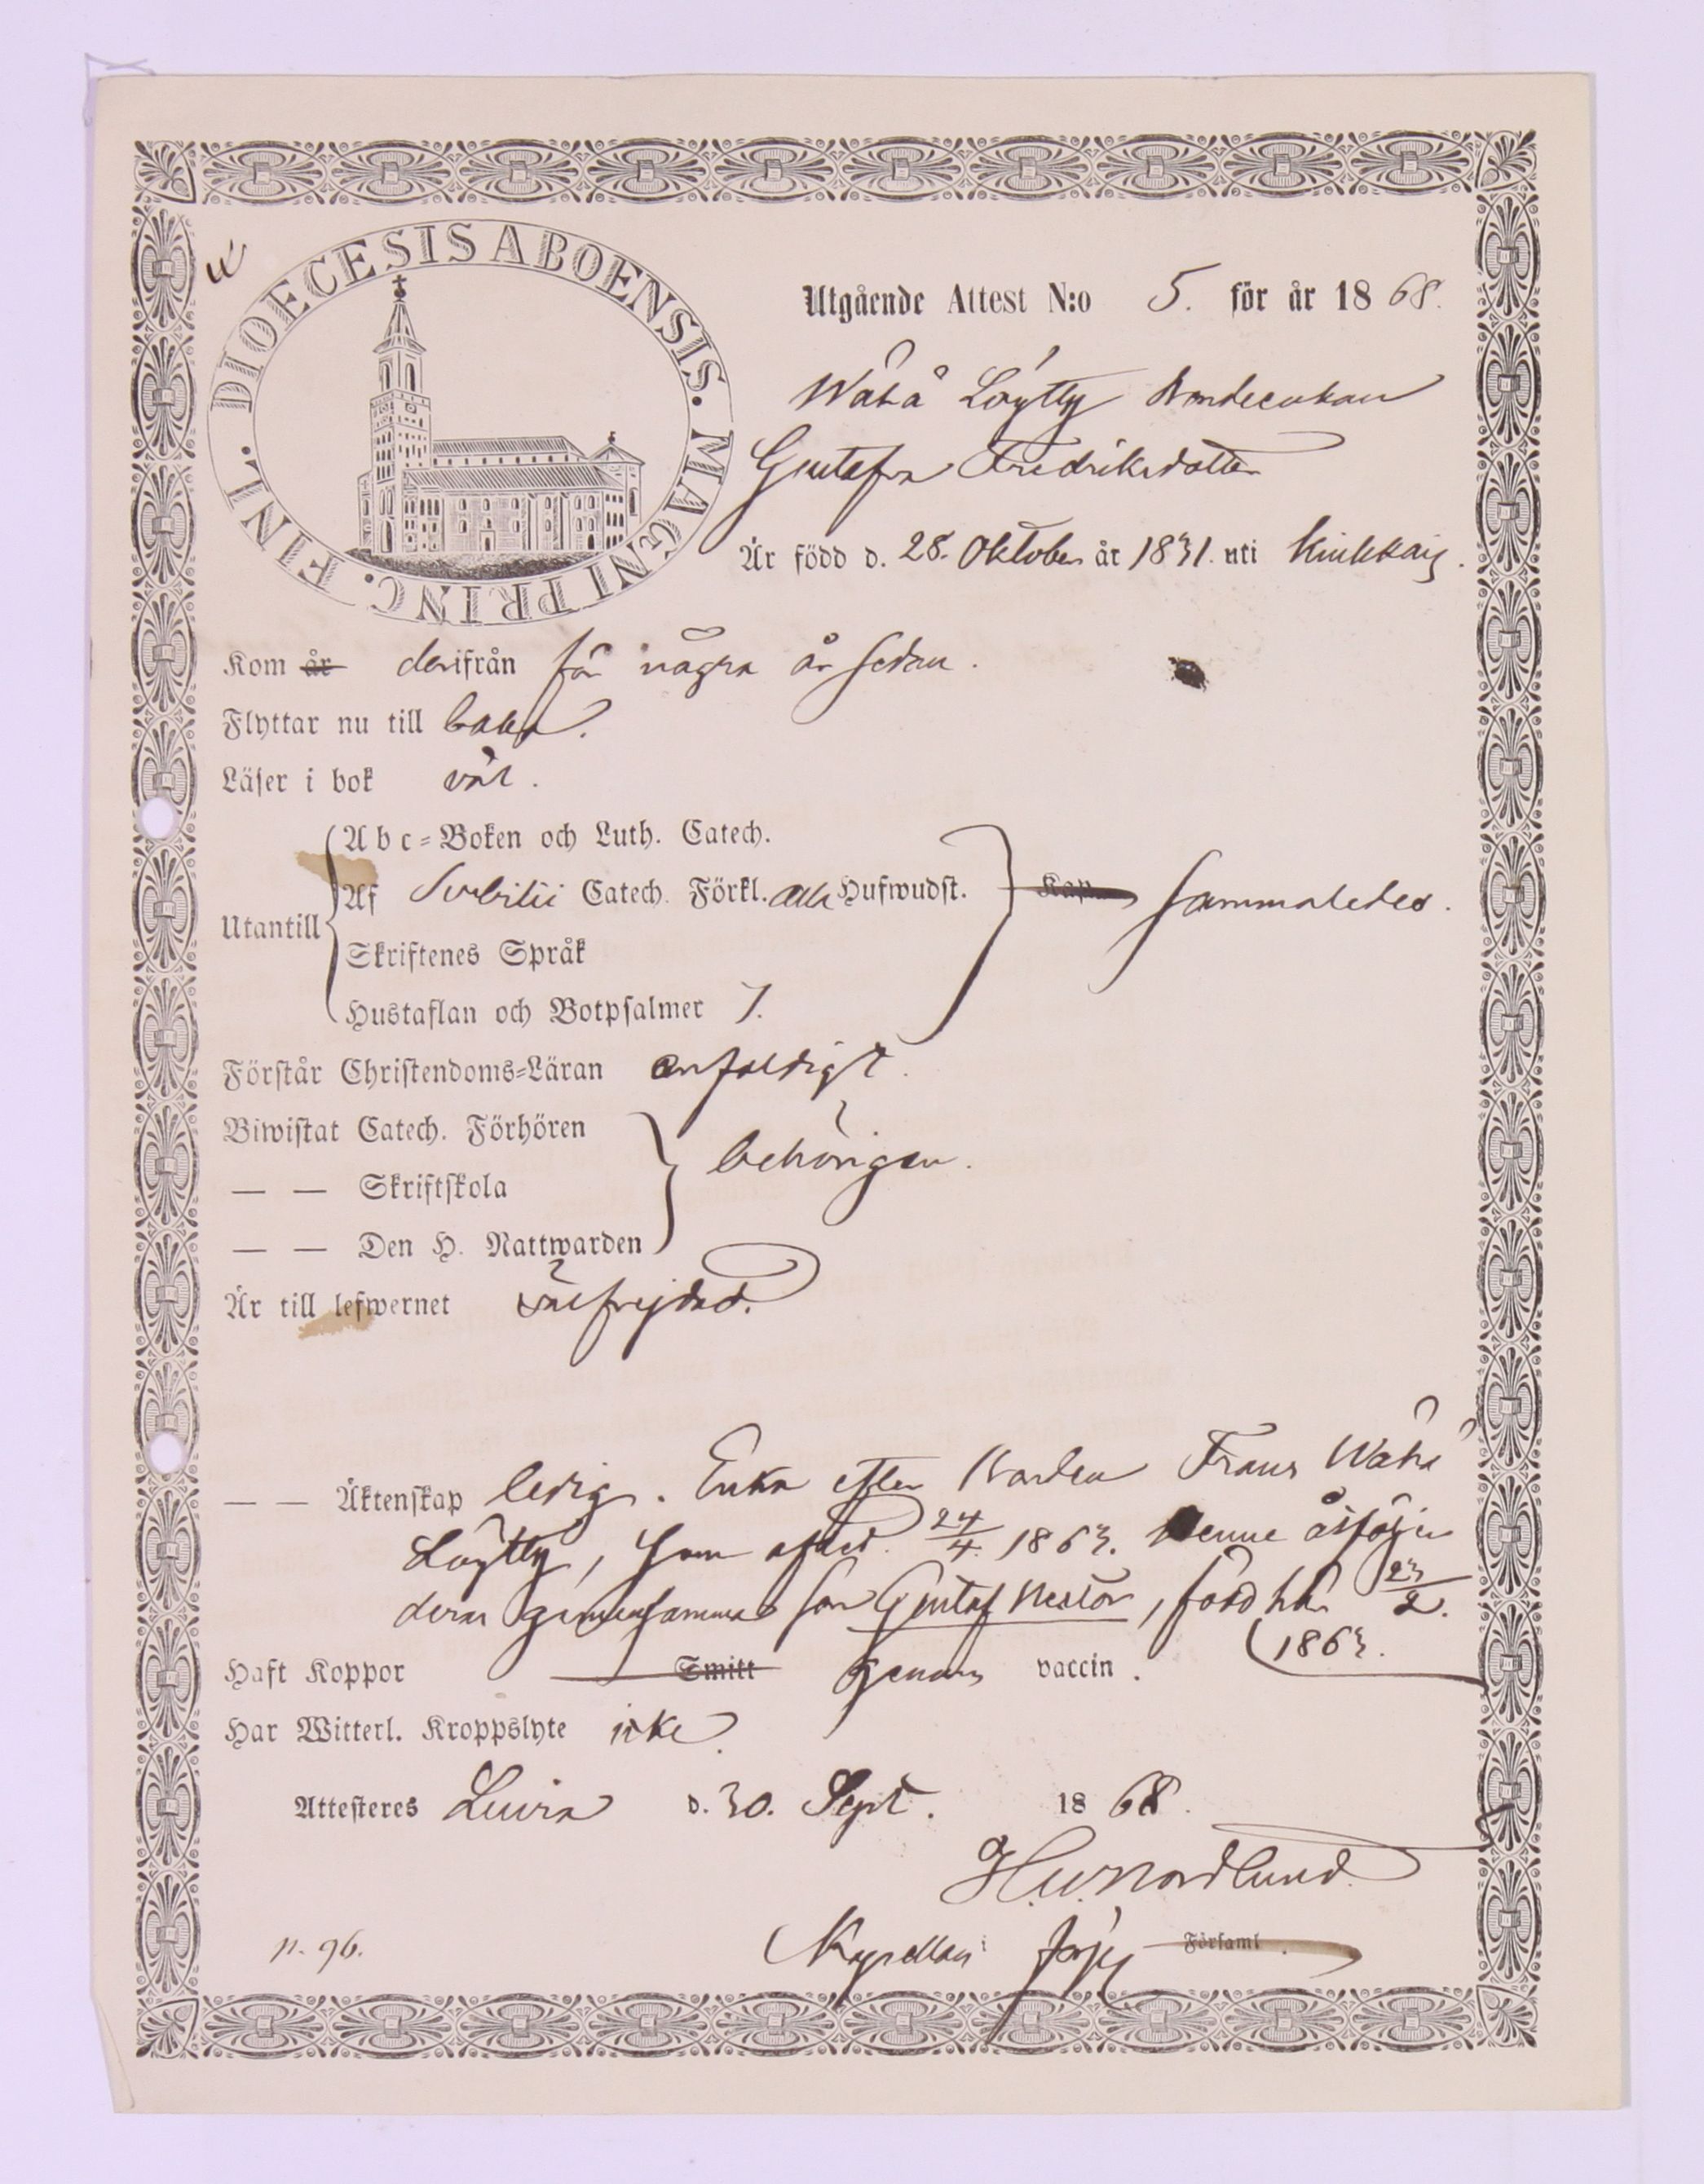 DIOECESIS ABOENSIS. MAGNI PRINC. FINL.
Utgående Attest N:o 5. för år 1868.
Wähä Löytty Bondeenkan
Gustafva Fredriksdotter
Är född d. 28. Oktober år 1831. uti Kiukkais.
Kom år derifrån för några år sedan.
Flyttar nu till baka.
Läser i bok väl.
Utantill
Abc-Boken och Luth. Catech.
Af Svebilii Catech. Förkl. alla Hufwudst. Kap. sammaledes.
Skriftenes Språk
Hustaflan och Botpsalmer 7.
Förstår Christendoms-Läran enfaldigt.
Biwistat Catech. Förhören
— — Skriftskola behörigen.
— — Den H. Nattwarden
Är till lefwernet välfrejdad.
— — Äktenskap ledig. Enka efter Bonden Frans Wähä
Löytty, som afled. 24/4 1863. Denne åtföljer
deras gemensamma son Gustaf Nestor, född här 23/2.
1863.
Haft Koppor Smitt genom vaccin.
Har Witterl. Kroppslyte icke.
Attesteres Luvia d. 30. Sept. 1868.
H. W. Nordlund.
Kapellan i förs. Församl.
p. 96.